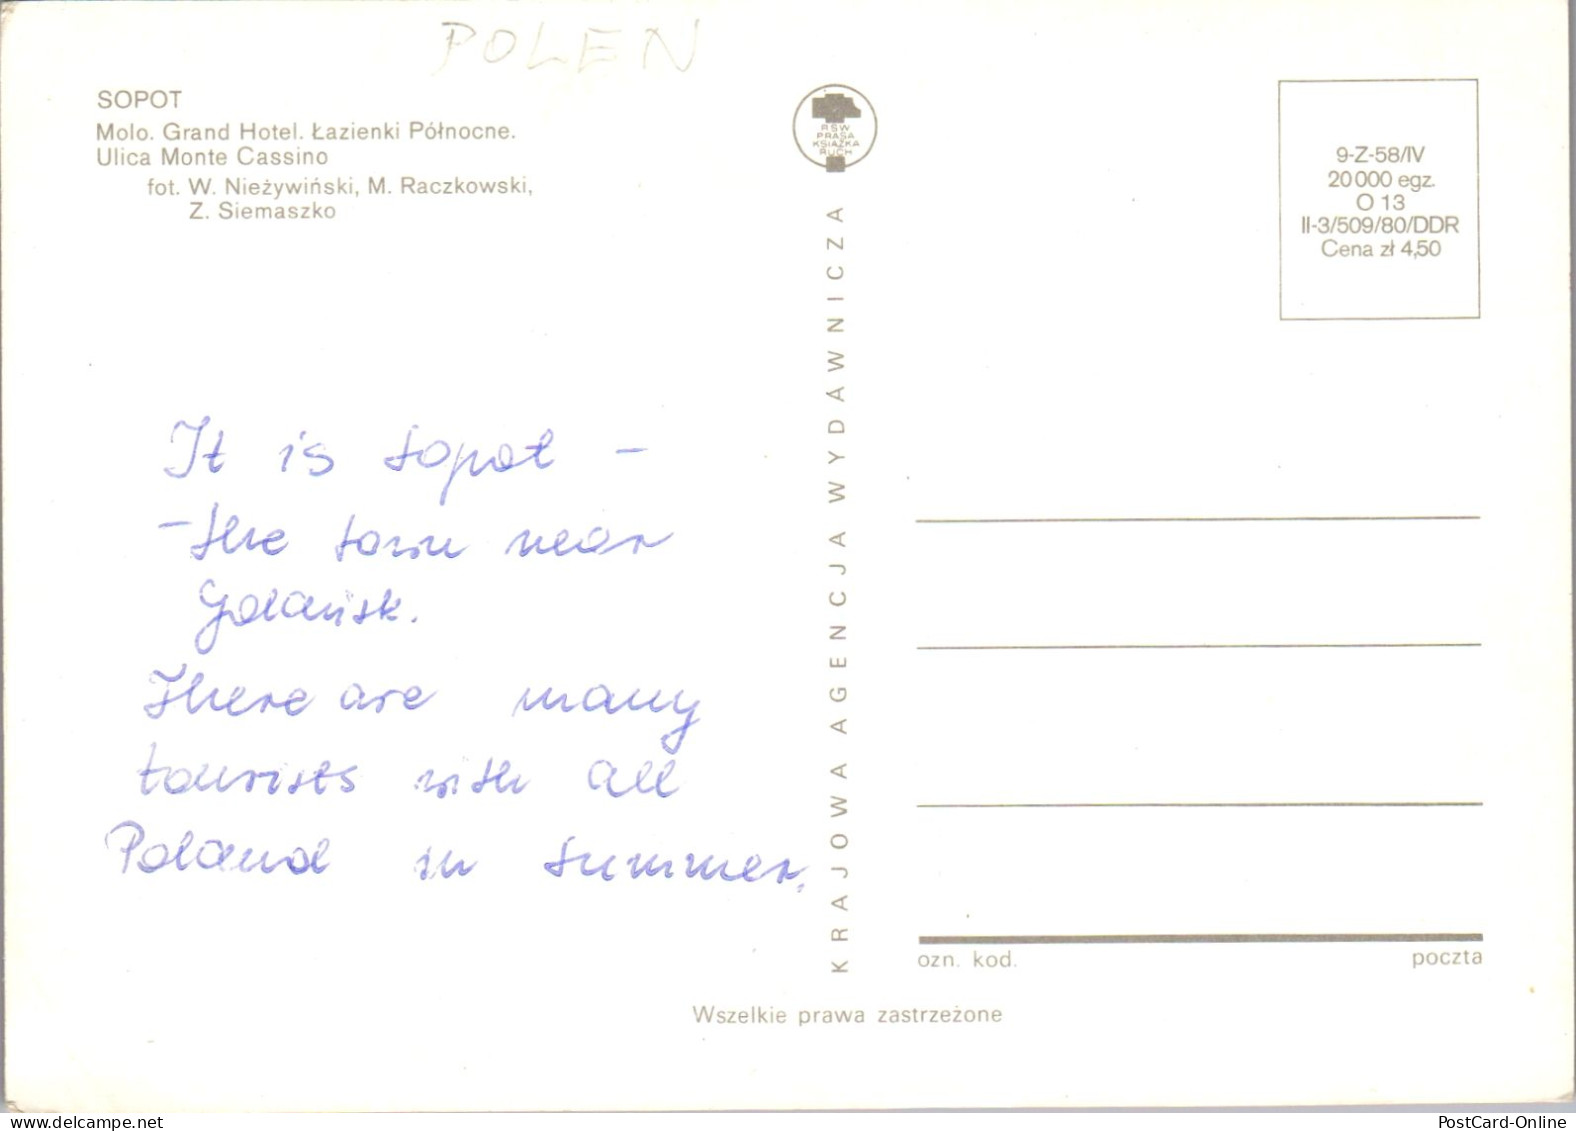 POLEN
SOPOT
Molo. Grand Hotel. Łazienki Północne.
Ulica Monte Cassino
fot. W. Nieżywiński, M. Raczkowski,
Z. Siemaszko
RSW
PRASA
KSIĄŻKA
RUCH
9-Z-58/IV
20 000 egz.
O 13
II-3/509/80/DDR
Cena zł 4,50
It is Sopot -
- the town near
Gdańsk.
There are many
tourists with all
Poland in summer.
KRAJOWA AGENCJA WYDAWNICZA
ozn. kod.
poczta
Wszelkie prawa zastrzeżone
PostCard-Online